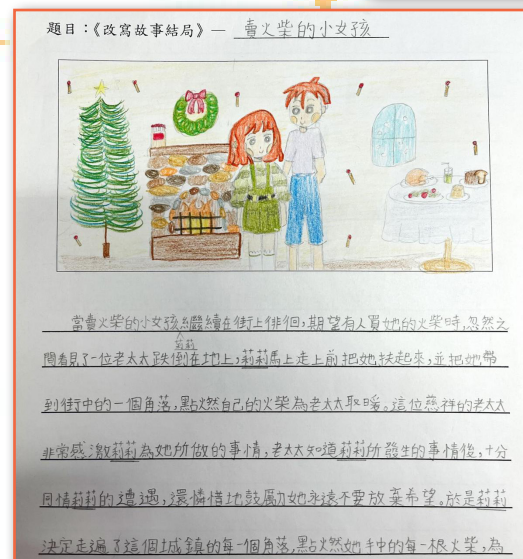 題目：《改寫故事結局》— 賣火柴的小女孩
當賣火柴的小女孩繼續在街上徘徊，期望有人買她的火柴時，忽然之
莉莉
間看見了一位老太太跌倒在地上，莉莉馬上走上前把她扶起來，並把她帶
到街中的一個角落，點燃自己的火柴為老太太取暖。這位慈祥的老太太
非常感激莉莉為她所做的事情，老太太知道莉莉所發生的事情後，十分
同情莉莉的遭遇，還憐惜地鼓勵她永遠不要放棄希望。於是莉莉
決定走遍了這個城鎮的每一個角落，點燃她手中的每一根火柴，為